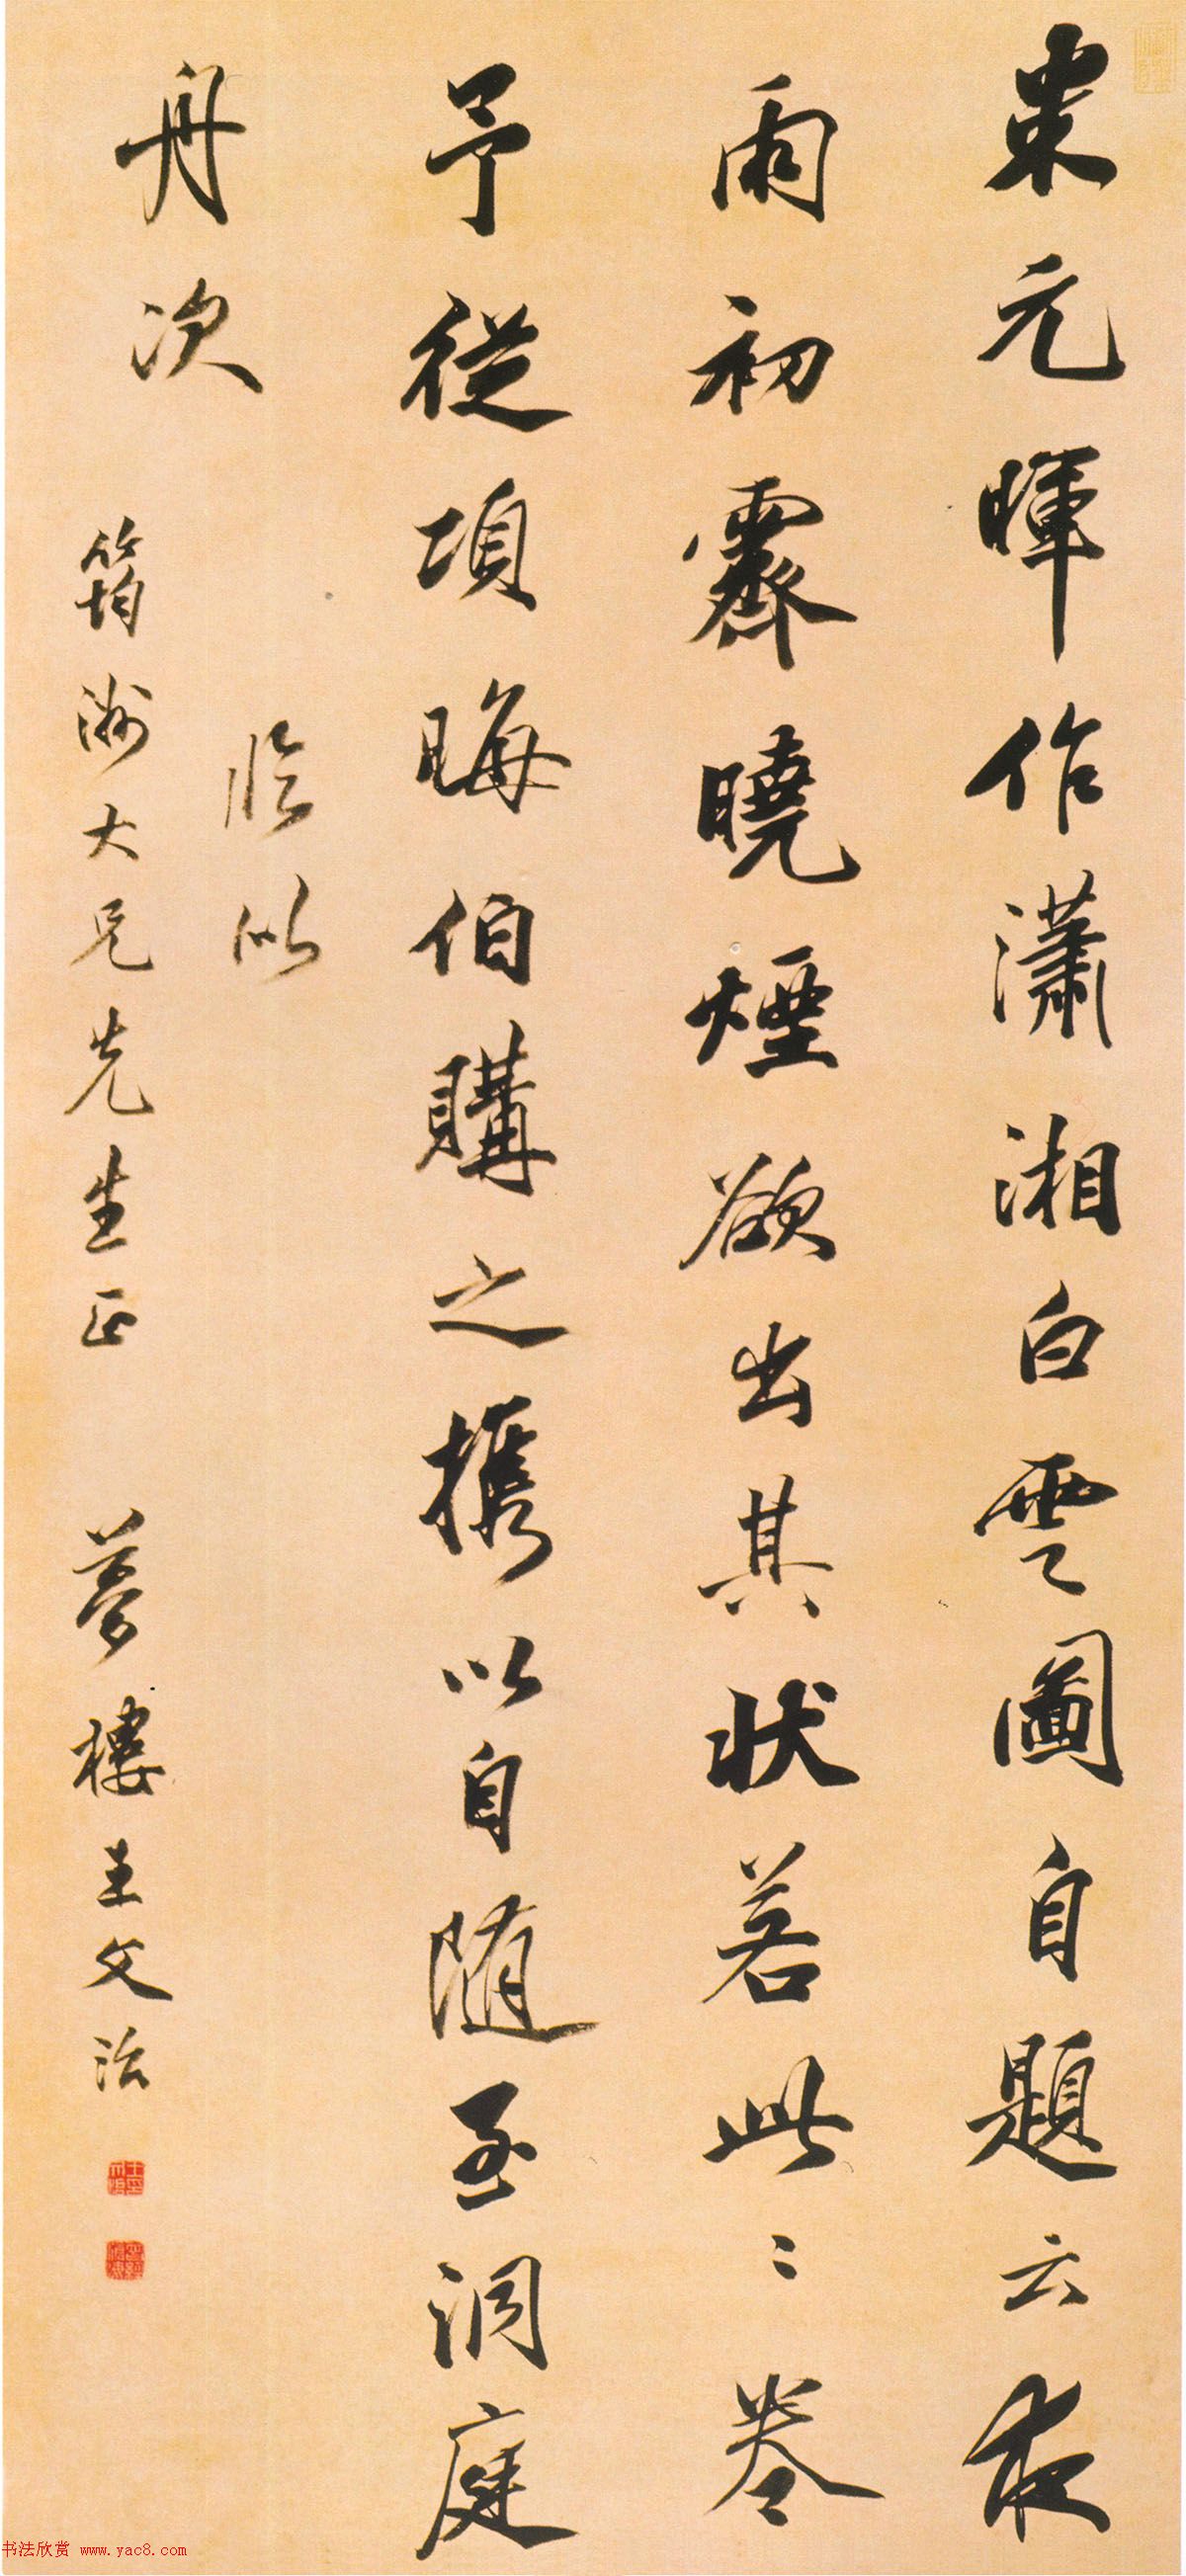 米元暉作瀟湘白雲圖自題云夜
雨初霽曉煙欲出其狀若此〻卷
予從項晦伯購之攜以自隨至洞庭
舟次
臨似
筠洲大兄先生正 夢樓王文治
书法欣赏 www.yac8.com